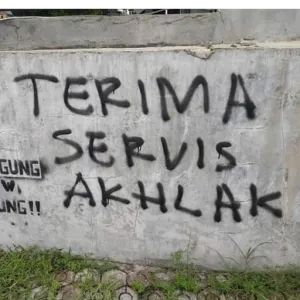 TERIMA
SERVIS
AKHLAK
GUNG
W.
UNG!!